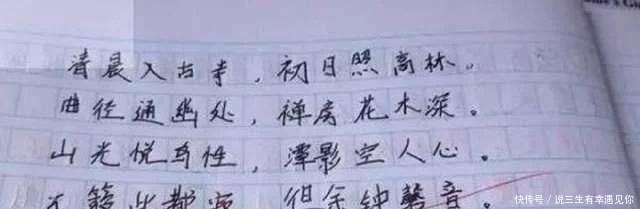 清晨入古寺，初日照高林。
曲径通幽处，禅房花木深。
山光悦鸟性，潭影空人心。
万籁此都寂 但余钟磬音。
快传号 / 说三生有幸遇见你